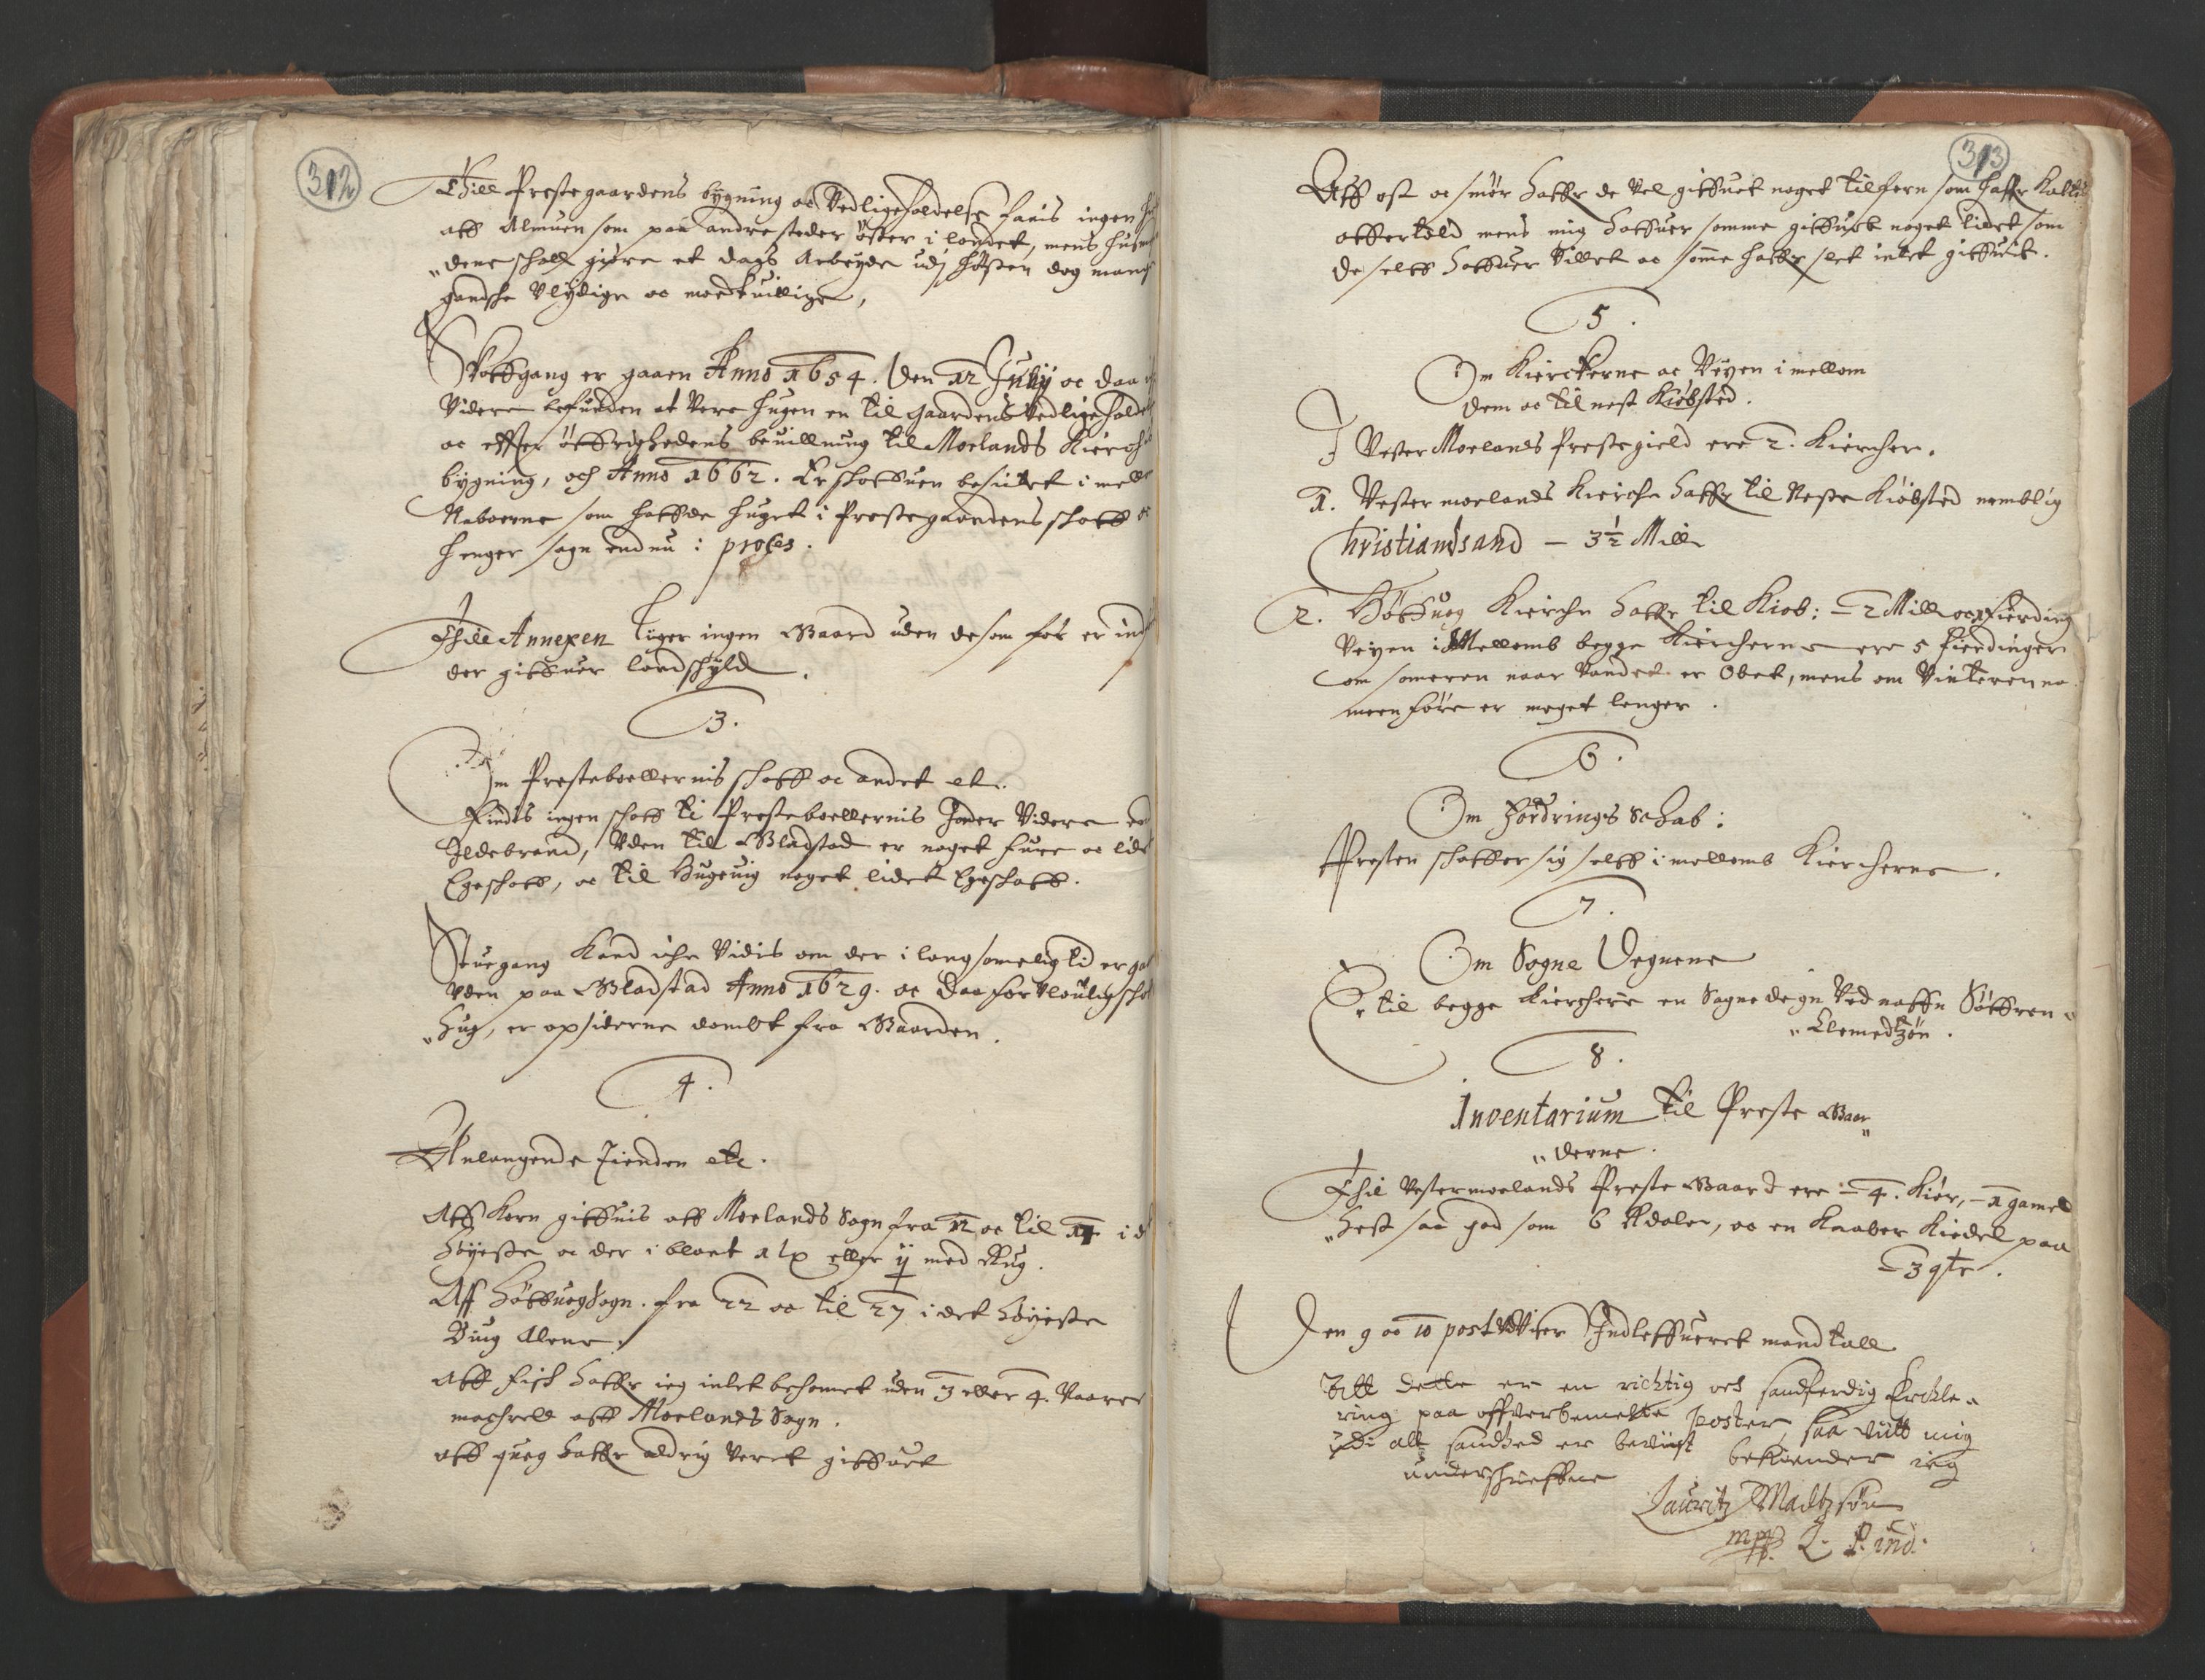 312
Thill Prestegaardens bygning oc Vedligeholdelse faais ingen
aff Almuen som paa andre steder öster i landet, mens husm
"dene schall giöre et dags Arbeyde udj Hösten dog mange
gandsche Vlydige oc modtuillige,
Skoffgang er gaaen Anno 1654. den 12 Julij oc daa
Videre befunden at Vere hugen en til gaardens Vedligehold
oc effter öffrighedens beuillning til Moelands Kierch
bygning, och Anno 1662. Er skoffuen besictet i mell
Naboerne som haffde hugget i Prestegaardens schoff oc
henger sagn endnu i proces.
Thill Annexen liger ingen Gaard uden de som för er ind
der giffuer landschyld.
3.
Om Presteboellernis schoff oc andet etc.
Findis ingen schoff til Presteboellernis Jorder Videre end
Ildebrand, Vden til Bladstad er noget furre oc lidt
Egeschoff, oc til Hugeuig noget lidet Egeschoff.
Skuegang Kand iche Vidis om der i langsommelig tid er ga
Vden paa Bladstad Anno 1629. oc daa for Vloulig scho
"hug, er opsiderne dömbt fra Gaarden.
4.
Anlangende Tienden etc.
Aff Korn giffuis aff Moelands Sogn fra 12 oc til 14 i d
höyeste oc der i blant 1 lp eller ij med Rug.
Aff Höffuog Sogn. fra 22 oc til 27 i det höyeste
Biug Alene.
Aff Fisk haffr ieg intet bekomet uden 3 eller 4. Vaarer
machrell aff Moelands Sogn.
aff queg haffr aldrig Veret giffuet
313
Aff ost oc smör haffr de Vel giffuet noget tilforn som haffr Kaldt
offertold mens mig haffuer somme giffuet noget lidet som
de selff haffuer Villet oc somme haffr slet intet giffuit.
5.
Om Kierckerne oc Veyen imellom
dem oc til nest Kiöbsted.
I Vester Moelands Prestegield ere 2. Kiercher.
1. Vestermoelands Kierche haffr til Neste Kiöbsted nemblig
Christiandsand - 3½ Mill
2. Höffuog Kierche haffr til Kiob: - 2 Mill oc 1 fierding
Veyen i Mellomb begge Kiercherne ere 5 fierdinger
om someren naar Vandet er Obet, mens om Vinteren na
meen före er meget lenger.
6.
Om Fordrings Schab:
Presten schaffer sig selff imellomb Kiercherne.
7.
Om Sogne Degnene
Er til begge Kiercherne en Sognedegn Ved naffn Söffren "
" Clemedtzön.
8.
Inventarium til Preste Gaar"
"derne.
Thil Vestermoelands Preste Gaard ere - 4. Kiör, - 1 gamel
"hest saa god som 6 Rdaler, oc en Kaaber Kiedel paa
- 3 gte.
Den 9 oc 10 post Viser Indleffueret mandtall
Att dette er en richtig och sandferdig Erckle"
ring paa offverbemelte poster, saa vitt mig
udi all sandhed er bevüst bekiender ieg
underschreffne
Lauritz Madtzsön
mpp. L. P. ind: